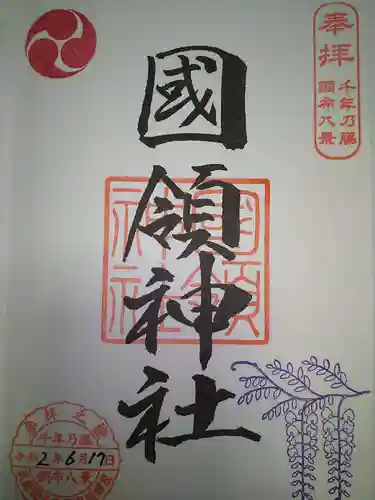 奉拝
千年乃藤
調布八景
國領神社
國領
神社
千年乃藤
令和2年6月17日
調布八景